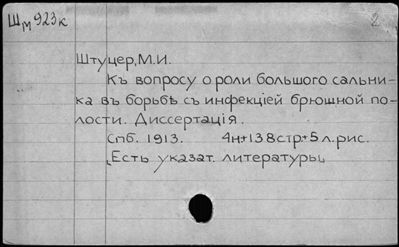 Шм923к
2
Штуцер, М.И.
Къ вопросу о роли большого сальни-
ка въ борьбѣ съ инфекціей брюшной по-
лости. Диссертація.
Спб. 1913. 4н+138стр+5л.рис.
„Есть указат. литературы„